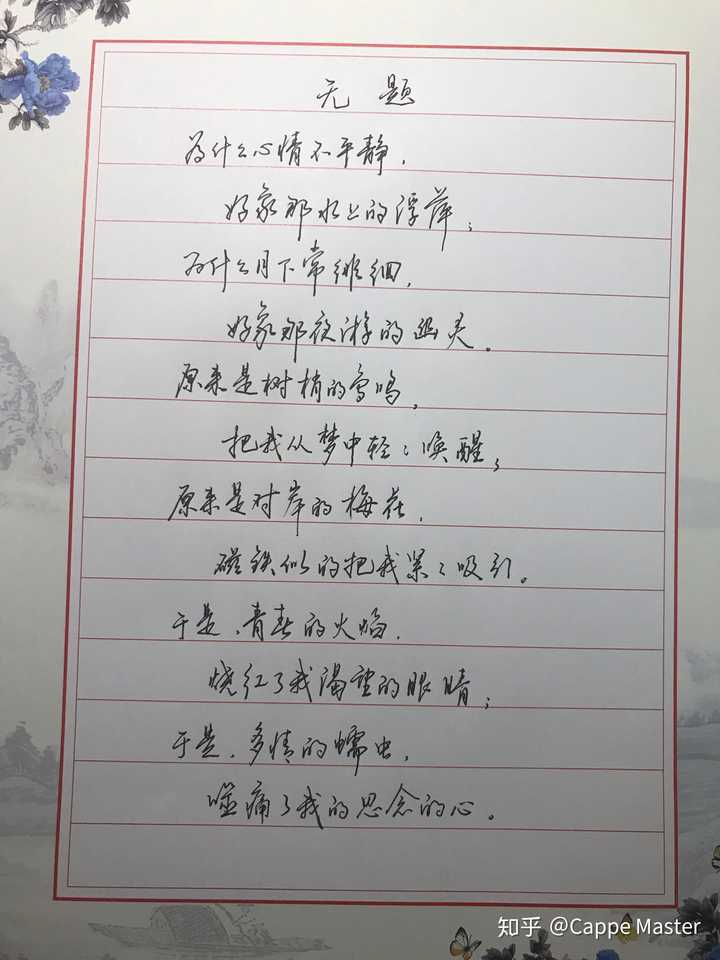 无 题
为什么心情不平静，
好象那水上的浮萍；
为什么月下常徘徊，
好象那夜游的幽灵。
原来是树梢的鸟鸣，
把我从梦中轻轻唤醒；
原来是对岸的梅花，
磁铁似的把我紧紧吸引。
于是，青春的火焰，
烧红了我渴望的眼睛；
于是，多情的蠕虫，
噬痛了我的思念的心。
知乎 @Cappe Master